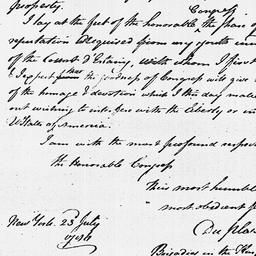 property.
Congress
I lay at the feet of the honorable the
reputation acquired from my youth
of the Count D'Estaing, with whom I first
& I expect the goodness of Congress will give
of the homage & devotion which I this day make
out wishing to interfere with the liberty or
of America.
I am with the most profound respect
the Honorable Congress
His most humble
most obedient
New York 23d July
Brigadier in the